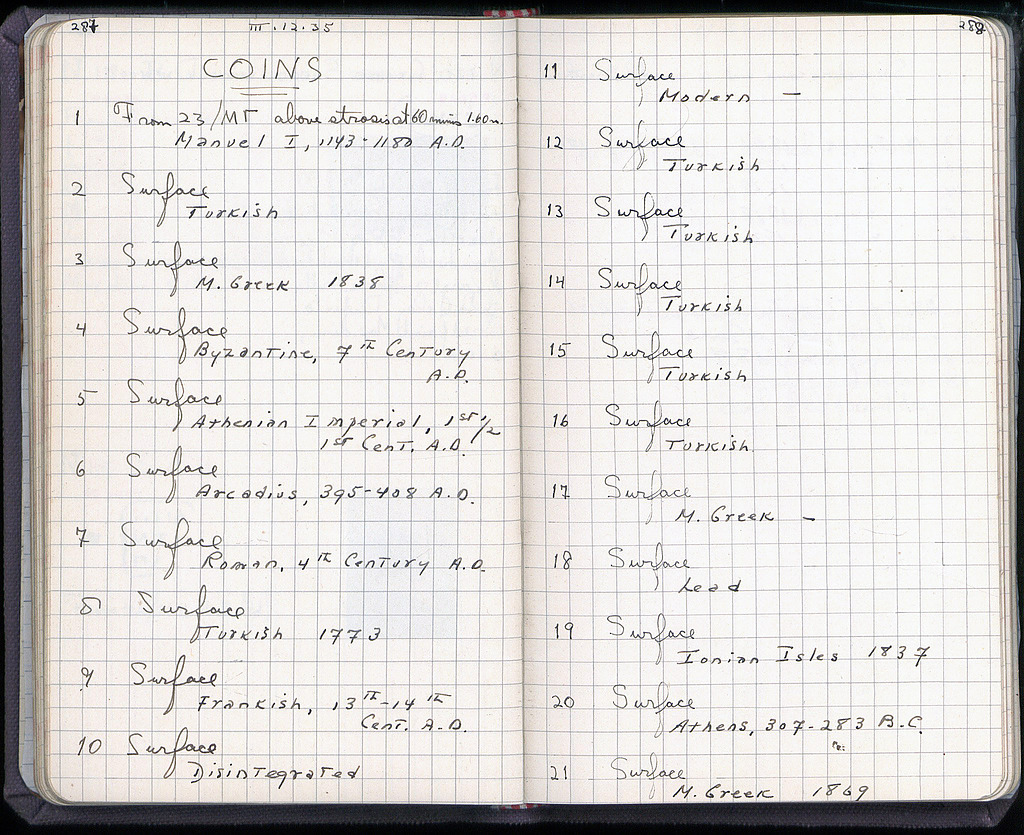 287
III.12.35
COINS
1 From 23/ΜΓ above strosis at 60 minus 1.60 m.
Manuel I, 1143-1180 A.D.
2 Surface
Turkish
3 Surface
M. Greek 1838
4 Surface
Byzantine, 7TH Century
A.D.
5 Surface
Athenian Imperial, 1ST 1/2
1ST Cent. A.D.
6 Surface
Arcadius, 395-408 A.D.
7 Surface
Roman, 4TH Century A.D.
8 Surface
Turkish 1773
9 Surface
Frankish, 13TH-14TH
Cent. A.D.
10 Surface
Disintegrated
288
11 Surface
Modern —
12 Surface
Turkish
13 Surface
Turkish
14 Surface
Turkish
15 Surface
Turkish
16 Surface
Turkish
17 Surface
M. Greek —
18 Surface
Lead
19 Surface
Ionian Isles 1837
20 Surface
Athens, 307-283 B.C.
21 Surface
M. Greek 1869